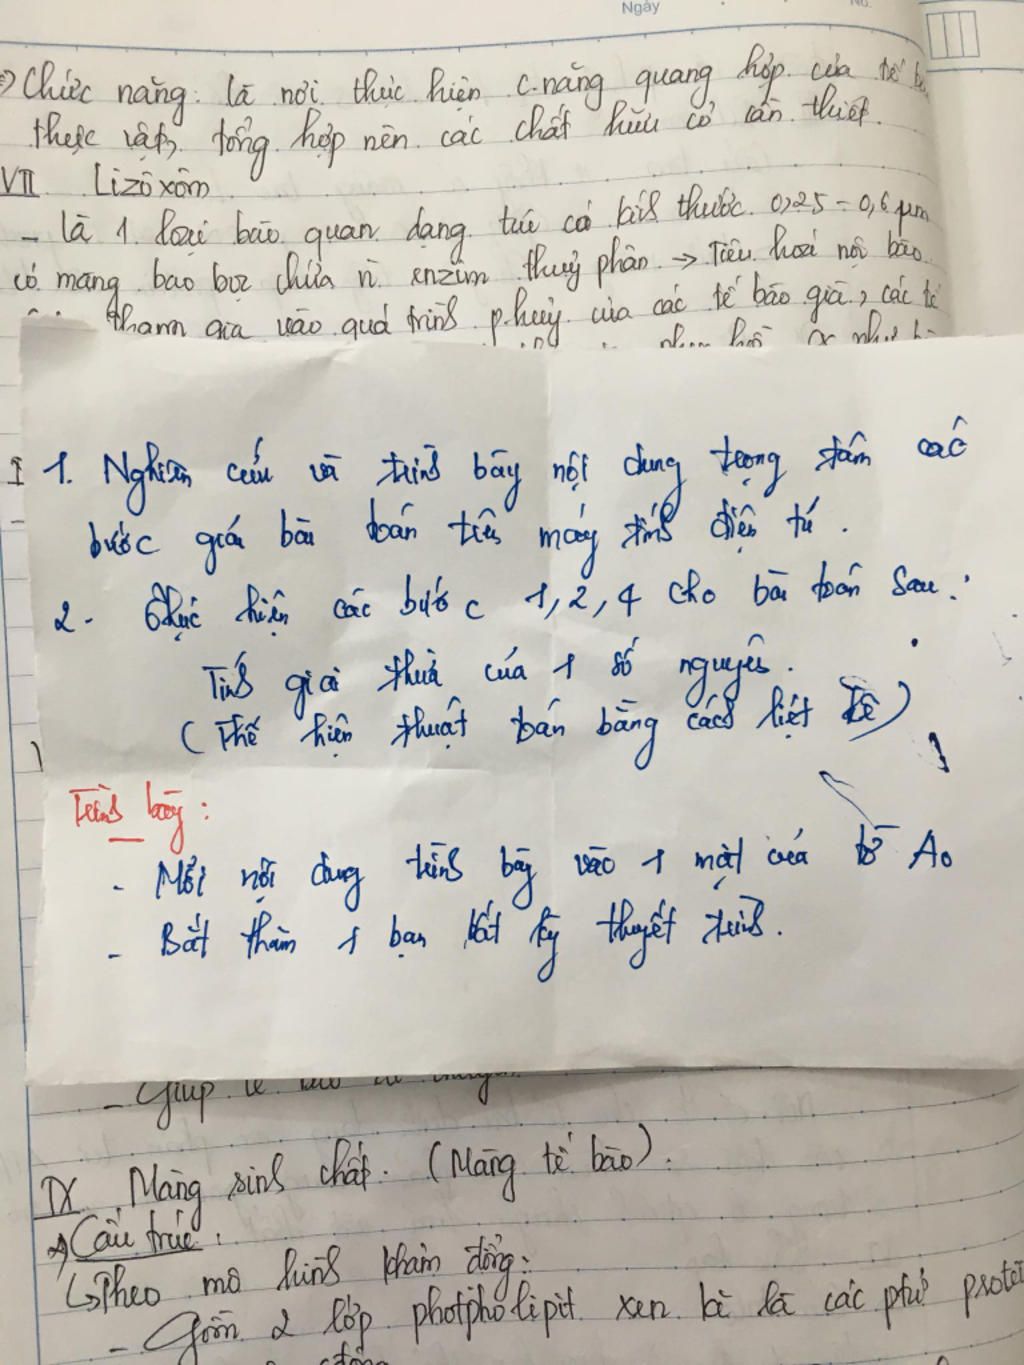 Ngày No.
Chức năng: là nơi thực hiện c.năng quang hợp của tế
thực vật, tổng hợp nên các chất hữu cơ cần thiết.
VII Lizôxôm
- là 1 loại bào quan dạng túi có kích thước 0,25 - 0,6 µm
có màng bao bọc chứa n enzim thuỷ phân → Tiêu hoá nội bào
tham gia vào quá trình p.huỷ của các tế bào già, các tế
I 1. Nghiên cứu và trình bày nội dung trọng tâm các
bước giải bài toán trên máy tính điện tử.
2. Thực hiện các bước 1, 2, 4 cho bài toán sau:
Tính giai thừa của 1 số nguyên.
(Thể hiện thuật toán bằng cách liệt kê)
Trình bày:
- Mỗi nội dung trình bày vào 1 mặt của tờ A0
- Bắt thăm 1 bạn bất kỳ thuyết trình.
- Giúp tế bào di chuyển
IX Màng sinh chất. (Màng tế bào).
a) Cấu trúc:
↳ Theo mô hình khảm động:
- Gồm 2 lớp photpholipit xen kẽ là các ptử protein
động